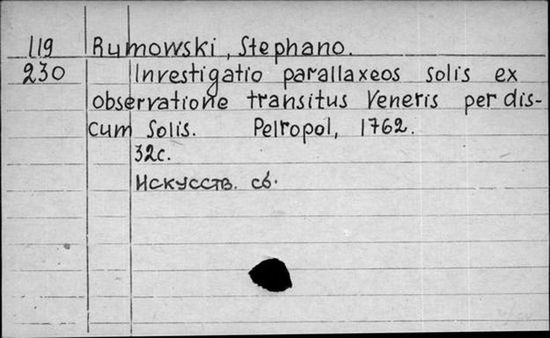 119 Rumowski, Stephano.
230 Investigatio parallaxeos solis ex
observatione transitus Veneris per dis-
cum Solis. Petropol, 1762.
32с.
Искусств. сб.